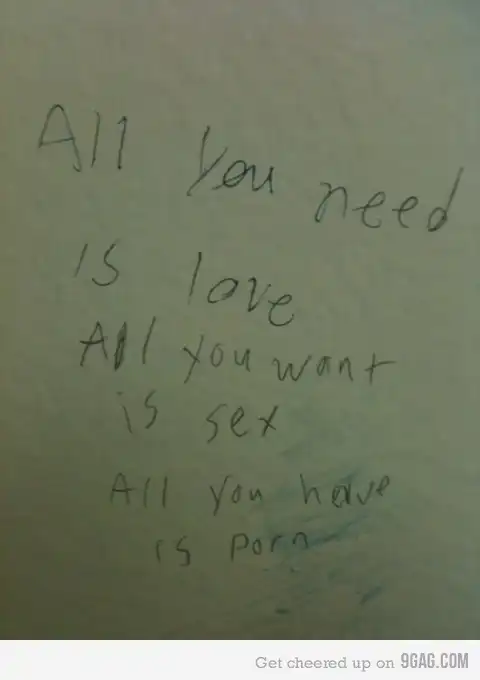 All you need
is love
All you want
is sex
All you have
is porn
Get cheered up on 9GAG.COM